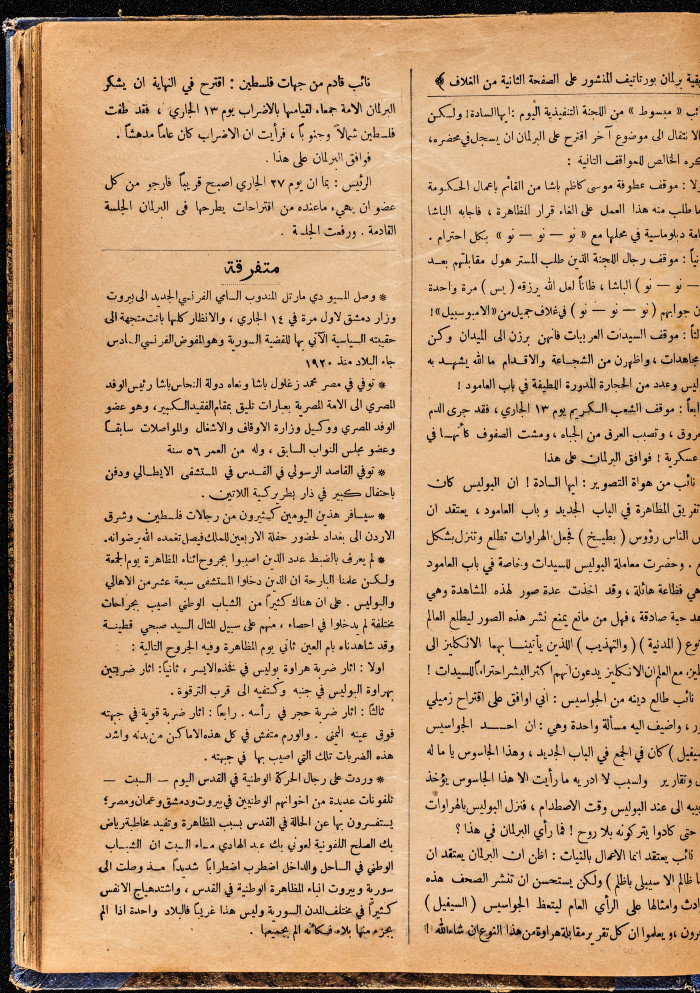 يقية برلمان بورتاتيف المنشور على الصفحة الثانية من الغلاف
ئب « مبسوط » من اللجنة التنفيذية اليوم : ايها السادة ! ولـكن
الانتقال الى موضوع آخر اقترح على البرلمان ان يسجل في محضره ،
كره الخالص للمواقف التالية :
ولا : موقف عطوفة موسى كاظم باشا من القائم باعمال الحكومة
ما طلب منه هذا العمل على الغاء قرار المظاهرة ، فاجابه الباشا
امة دبلوماسية في محلها مع « نو — نو — نو » بكل احترام .
نياً : موقف رجال اللجنة الذين طلب المستر هول مقابلتهم بعد
— نو — نو ) الباشا ، ظاناً لعل الله يرزقه ( يس ) مرة واحدة
ن جوابهم ( نو — نو — نو ) في غلاف جميل من « الامبوسيبل » !
لثاً : موقف السيدات العربيات فانهن برزن الى الميدان وكن
مجاهدات ، واظهرن من الشجاعة والاقدام ما الله يشهد به
ليس وعدد من الحجارة المدورة اللطيفة في باب العامود !
ابعاً : موقف الشعب الكريم يوم ١٣ الجاري ، فقد جرى الدم
مروق ، وتصبب العرق من الجباه ، ومشت الصفوف كأنها في
عسكرية ! فوافق البرلمان على هذا
نائب من هواة التصوير : ايها السادة ! ان البوليس كان
تفريق المظاهرة في الباب الجديد و باب العامود ، يعتقد ان
س الناس رؤوس ( بطيخ ) فجعل الهراوات تطلع وتنزل بشكل
ع . وحضرت معاملة البوليس للسيدات وخاصة في باب العامود
هي فظاعة هائلة ، وقد اخذت عدة صور لهذه المشاهدة وهي
هد حية صادقة ، فهل من مانع يمنع نشر هذه الصور ليطلع العالم
نوع ( المدنية ) ( والتهذيب ) اللذين يأتينا بهما الانكليز الى
طين، مع العلم ان الانكليز يدعون انهم اكثر البشر احتراماً للسيدات !
نائب طالع دينه من الجواسيس : اني اوافق على اقتراح زميلي
ور ، واضيف اليه مسألة واحدة وهي : ان احـــد الجواسيس
سيفيل ) كان في الجمع في الباب الجديد ، وهذا الجاسوس ياما له
ل وتقارير ولسبب لا ادريه ما رأيت الا هذا الجاسوس يؤخذ
بيبه الى عند البوليس وقت الاصطدام ، فنزل البوليس بالهراوات
حتى كادوا يتركونه بلا روح ! فما رأي البرلمان في هذا ؟
نائب يعتقد انما الاعمال بالنيات : اظن ان البرلمان يعتقد ان
ما ظالم الا سيبلى باظلم ) ولكن يستحسن ان تنشر الصحف هذه
ادث وامثالها على الرأي العام ليتعظ الجواسيس ( السيفيل )
خرون ، ويعلموا ان كل تقرير مقابله هراوة من هذا النوع ان شاء الله !
نائب قادم من جهات فلسطين : اقترح في النهاية ان يشكر
البرلمان الامة جمعاء لقيامها بالاضراب يوم ١٣ الجاري ، فقد طفت
فلسطين شمالاً وجنوباً ، فرأيت ان الاضراب كان عاماً مدهشاً .
فوافق البرلمان على هذا .
الرئيس : بما ان يوم ٢٧ الجاري اصبح قريباً فارجو من كل
عضو ان يهيء ما عنده من اقتراحات يطرحها في البرلمان الجلسة
القادمة . ورفعت الجلسة .
متفرقة
* وصل المسيو دي مارتل المندوب السامي الفرنسي الجديد الى بيروت
وزار دمشق لاول مرة في ١٤ الجاري ، والانظار كلها باتت متجهة الى
حقيبته السياسية الآتي بها للقضية السورية وهو المفوض الفرنسي السادس
جاء البلاد منذ ١٩٢٠
* توفي في مصر محمد زغلول باشا ونعاه دولة النحاس باشا رئيس الوفد
المصري الى الامة المصرية بعبارات تليق بمقام الفقيد الكبير ، وهو عضو
الوفد المصري ووكيل وزارة الاوقاف والاشغال والمواصلات سابقاً
وعضو مجلس النواب السابق ، وله من العمر ٥٦ سنة
* توفي القاصد الرسولي في القدس في المستشفى الايطالي ودفن
باحتفال كبير في دار بطريركية اللاتين .
* سيسافر هذين اليومين كثيرون من رجالات فلسطين وشرق
الاردن الى بغداد لحضور حفلة الاربعين للملك فيصل تغمده الله برضوانه .
* لم يعرف بالضبط عدد الذين اصيبوا بجروح اثناء المظاهرة يوم الجمعة
ولكن علمنا البارحة ان الذين دخلوا المستشفى سبعة عشر من الاهالي
والبوليس . على ان هناك كثيراً من الشباب الوطني اصيب بجراحات
مختلفة لم يدخلوا في احصاء ، منهم على سبيل المثال السيد صبحي قطينة
وقد شاهدناه بام العين ثاني يوم المظاهرة وفيه الجروح التالية :
اولا : اثار ضربة هراوة بوليس في فخذه الايسر ، ثانياً : اثار ضربتين
بهراوة البوليس في جنبه وكتفيه الى قرب الترقوة .
ثالثاً : اثار ضربة حجر في رأسه . رابعاً : اثار ضربة قوية في جبهته
فوق عينه اليمنى . والورم متفش في كل هذه الاماكن من بدنه واشد
هذه الضربات تلك التي اصيب بها في جبهته .
* وردت على رجال الحركة الوطنية في القدس اليوم — السبت —
تلفونات عديدة من اخوانهم الوطنيين في بيروت ودمشق وعمان ومصر ؛
يستفسرون بها عن الحالة في القدس بسبب المظاهرة وتفيد مخاطبة رياض
بك الصلح التلفونية لعوني بك عبد الهادي مساء السبت ان الشباب
الوطني في الساحل والداخل اضطرب اضطراباً شديداً مذ وصلت الى
سورية وبيروت انباء المظاهرة الوطنية في القدس ، واشتد هياج الانفس
كثيراً في مختلف المدن السورية وليس هذا غريباً فالبلاد واحدة اذا الم
بجزء منها بلاء فكأنه الم بجميعها .